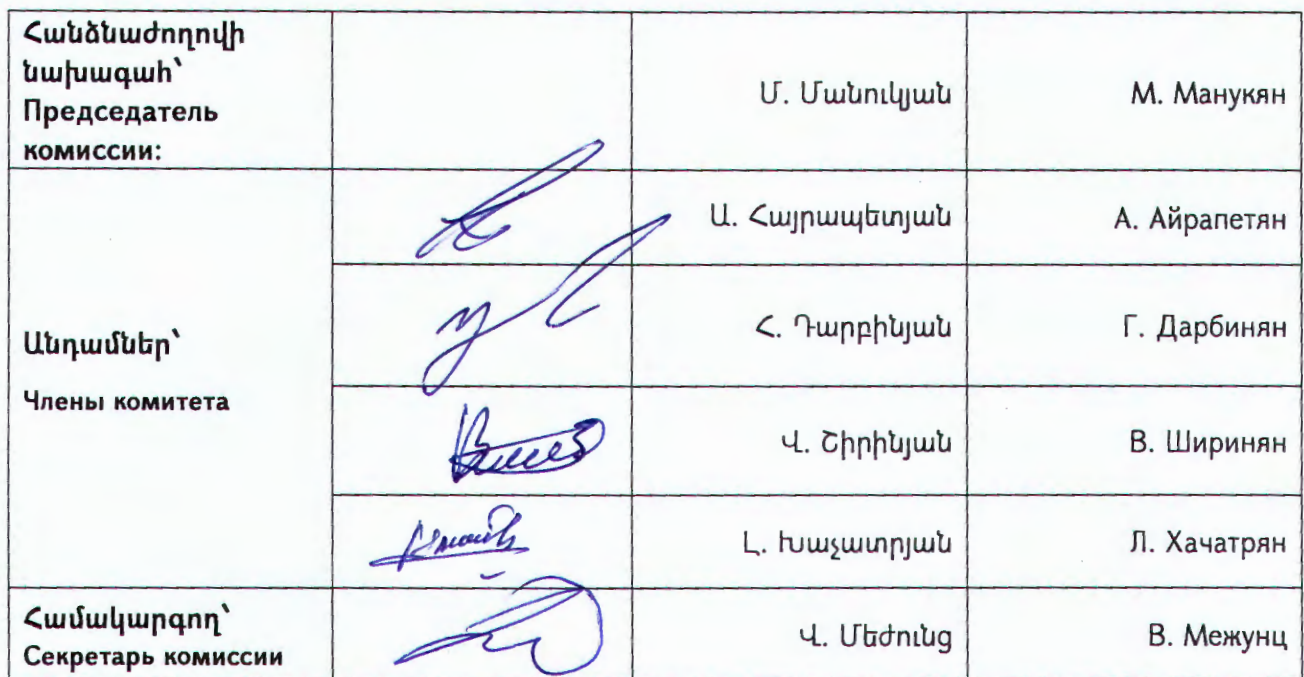 Հանձնաժողովի
նախագահ՝
Председатель
комиссии:
Մ. Մանուկյան
М. Манукян
Ա. Հայրապետյան
А. Айрапетян
Անդամներ՝
Члены комитета
Հ. Դարբինյան
Г. Дарбинян
Վ. Շիրինյան
В. Ширинян
Լ. Խաչատրյան
Л. Хачатрян
Համակարգող՝
Секретарь комиссии
Վ. Մեժունց
В. Межунц